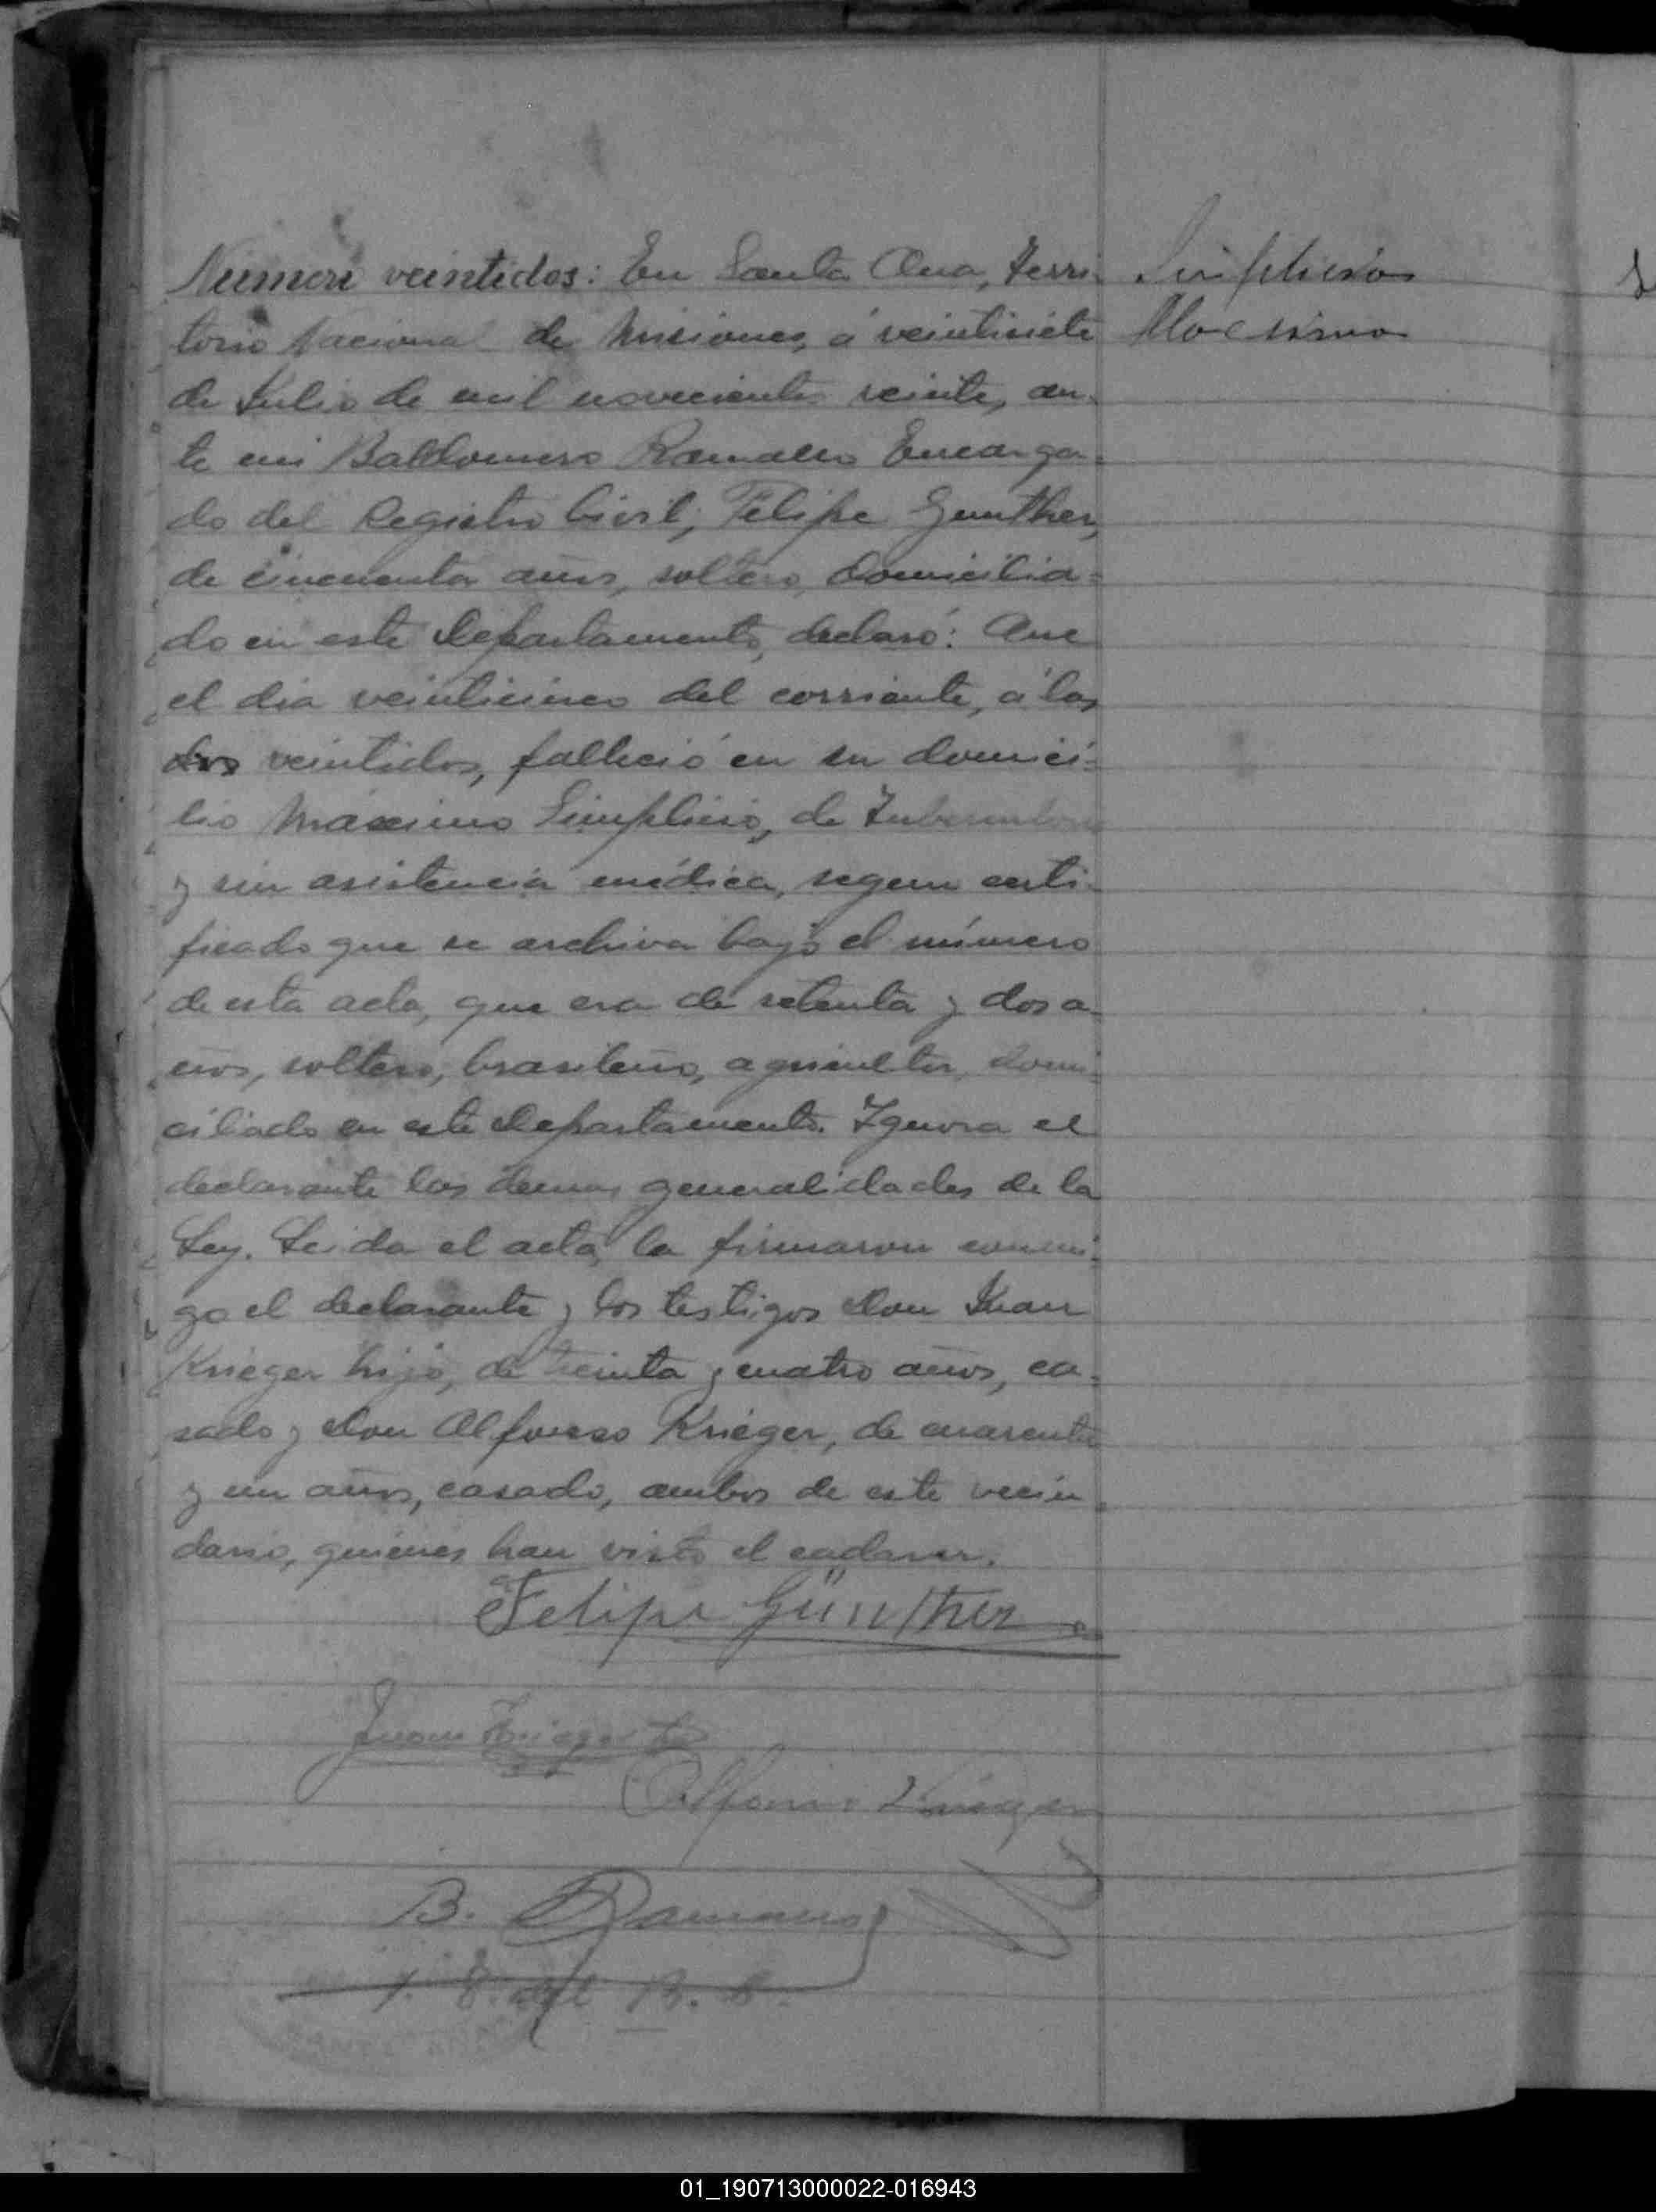 Número veintidos: En Santa Ana, Terri-
torio Nacional de Misiones, á veintisiete
de Julio de mil novecientos veinte, an-
te mi Baldomero Encarga-
do del Registro Civil; Felipe Gunther,
de cincuenta años, soltero, domicilia=
do en este Departamento, declaró: Que
el dia veinticinco del corriente, á las
dos veintidos, falleció en su domici=
lio Máximo Simplicio, de Tuberculosis
y sin asistencia médica, segun certi-
ficado que se archiva bajo el número
de esta acta, que era de setenta y dos a-
ños, soltero, brasileño, agricultor, domi-
ciliado en este Departamento. Ignora el
declarante las demas generalidades de la
Ley. Leida el acta, la firmaron conmi-
go el declarante y los testigos Don Juan
Krieger hijo, de treinta y cuatro años, ca-
sado y Don Alfonso Krieger, de cuarenta
y un años, casado, ambos de este vecin-
dario, quienes han visto el cadaver.
Felipe Günther
Juan Krieger
Alfonso Krieger
B.
Simplicio
Maximo
01_190713000022-016943